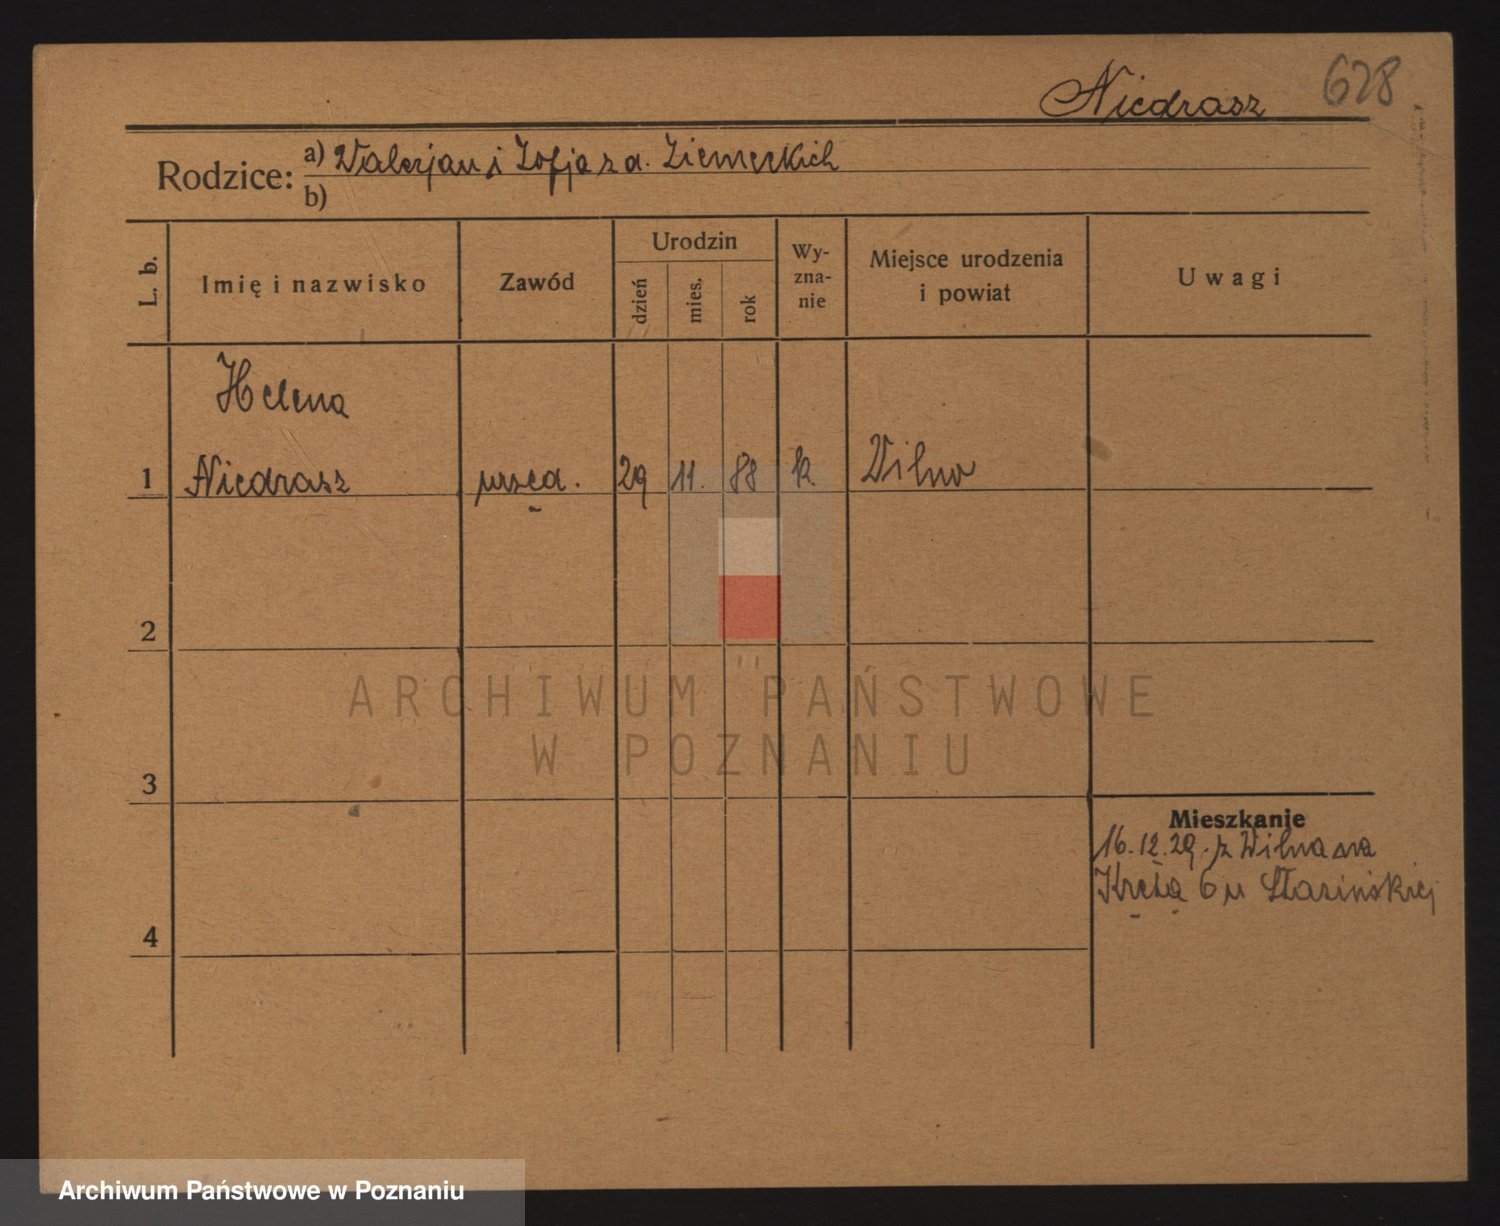 Niedrasz 628
Rodzice: a) Walerjan i Zofja z d. Ziemeckich
b)
L. b. Imię i nazwisko Zawód Urodzin dzień mies. rok Wy-zna-nie Miejsce urodzenia i powiat Uwagi
Helena
1 Niedrasz urzęd. 29 11. 88 k. Wilno
2
ARCHIWUM PAŃSTWOWE
W POZNANIU
3
Mieszkanie
16.12.29. z Wilna na
Krętą 6 u Stasińskiej
4
Archiwum Państwowe w Poznaniu